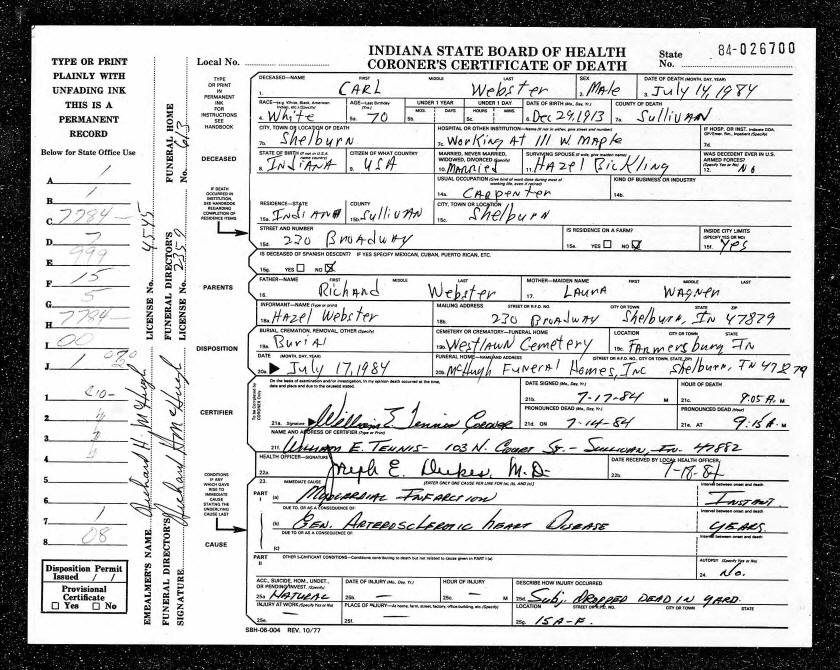 INDIANA STATE BOARD OF HEALTH
CORONER'S CERTIFICATE OF DEATH
Local No.
State No. 84-026700
TYPE OR PRINT
PLAINLY WITH
UNFADING INK
THIS IS A
PERMANENT
RECORD
Below for State Office Use
A 1
B 1
C 7784-
D 7
E 999
F 15
G 5
H 7784-
I 00
J 1
1
2
3
4
5
6
7 1
8 08
Disposition Permit
Issued / /
Provisional
Certificate
☐ Yes ☐ No
EMBALMER'S NAME Richard H. McHugh LICENSE No. 4545
FUNERAL DIRECTOR'S SIGNATURE Richard H McHugh
FUNERAL DIRECTOR'S LICENSE No. 2359
FUNERAL HOME No. 613
TYPE
OR PRINT
IN
PERMANENT
INK
FOR
INSTRUCTIONS
SEE
HANDBOOK
DECEASED
IF DEATH
OCCURRED IN
INSTITUTION,
SEE HANDBOOK
REGARDING
COMPLETION OF
RESIDENCE ITEMS
PARENTS
DISPOSITION
CERTIFIER
CONDITIONS
IF ANY
WHICH GAVE
RISE TO
IMMEDIATE
CAUSE
STATING THE
UNDERLYING
CAUSE LAST
CAUSE
DECEASED—NAME FIRST MIDDLE LAST SEX DATE OF DEATH (MONTH, DAY, YEAR)
1. CARL Webster 2. Male 3. July 14, 1984
RACE—(e.g. White, Black, American Indian, etc.) (Specify) AGE—Last Birthday (Yrs.) UNDER 1 YEAR UNDER 1 DAY DATE OF BIRTH (Mo., Day, Yr.) COUNTY OF DEATH
MOS. DAYS HOURS MINS.
4. White 5a. 70 5b. 5c. 6. Dec 29, 1913 7a. Sullivan
CITY, TOWN OR LOCATION OF DEATH HOSPITAL OR OTHER INSTITUTION—Name (If not in either, give street and number) IF HOSP. OR INST. Indicate DOA, OP/Emer. Rm., Inpatient (Specify)
7b. Shelburn 7c. Working At 111 W. Maple 7d.
STATE OF BIRTH (If not in U.S.A. name country) CITIZEN OF WHAT COUNTRY MARRIED, NEVER MARRIED, WIDOWED, DIVORCED (Specify) SURVIVING SPOUSE (If wife, give maiden name) WAS DECEDENT EVER IN U.S. ARMED FORCES? (Specify Yes or No)
8. INDIANA 9. USA 10. MARRIED 11. HAZEL Bickling 12. No
USUAL OCCUPATION (Give kind of work done during most of working life, even if retired) KIND OF BUSINESS OR INDUSTRY
14a. CARpenter 14b.
RESIDENCE—STATE COUNTY CITY, TOWN OR LOCATION
15a. Indiana 15b. Sullivan 15c. Shelburn
STREET AND NUMBER IS RESIDENCE ON A FARM? INSIDE CITY LIMITS (SPECIFY YES OR NO)
15d. 230 Broadway 15e. YES ☐ NO ☑ 15f. Yes
IS DECEASED OF SPANISH DESCENT? IF YES SPECIFY MEXICAN, CUBAN, PUERTO RICAN, ETC.
15g. YES ☐ NO ☒
FATHER—NAME FIRST MIDDLE LAST MOTHER—MAIDEN NAME FIRST MIDDLE LAST
16. Richard Webster 17. LAURA WAGNER
INFORMANT—NAME (Type or print) MAILING ADDRESS STREET OR R.F.D. NO. CITY OR TOWN STATE ZIP
18a. Hazel Webster 18b. 230 Broadway Shelburn, IN 47879
BURIAL, CREMATION, REMOVAL, OTHER (Specify) CEMETERY OR CREMATORY—FUNERAL HOME LOCATION CITY OR TOWN STATE
19a. Burial 19b. Westlawn Cemetery 19c. Farmersburg IN
DATE (MONTH, DAY, YEAR) FUNERAL HOME—NAME AND ADDRESS (STREET OR R.F.D. NO., CITY OR TOWN, STATE, ZIP)
20a. July 17, 1984 20b. McHugh Funeral Homes, Inc Shelburn, IN 47879
To be Completed by CORONER Only
On the basis of examination and/or investigation, in my opinion death occurred at the time, date and place and due to the cause(s) stated.
21a. Signature William E Tennis Coroner
DATE SIGNED (Mo., Day, Yr.) HOUR OF DEATH
21b. 7-17-84 M 21c. 9:05 A. M
PRONOUNCED DEAD (Mo., Day, Yr.) PRONOUNCED DEAD (Hour)
21d. ON 7-14-84 21e. AT 9:15 A. M
NAME AND ADDRESS OF CERTIFIER (Type or Print)
21f. William E. Tennis- 103 N. Court St.- Sullivan, In. 47882
HEALTH OFFICER—SIGNATURE DATE RECEIVED BY LOCAL HEALTH OFFICER
22a. Joseph E. Dukes M.D. 22b. 7-18-84
23. IMMEDIATE CAUSE [ENTER ONLY ONE CAUSE PER LINE FOR (a), (b), AND (c)] Interval between onset and death
PART I (a) Myocardial Infarction Instant.
DUE TO, OR AS A CONSEQUENCE OF: Interval between onset and death
(b) Gen. Arterosclerotic Heart Disease YEARS
DUE TO, OR AS A CONSEQUENCE OF: Interval between onset and death
(c)
PART II OTHER SIGNIFICANT CONDITIONS—Conditions contributing to death but not related to cause given in PART I (a) AUTOPSY (Specify Yes or No)
24. No.
ACC., SUICIDE, HOM., UNDET., OR PENDING INVEST. (Specify) DATE OF INJURY (Mo., Day, Yr.) HOUR OF INJURY DESCRIBE HOW INJURY OCCURRED
25a. NATURAL 25b. — 25c. — M 25d. Subj. DROPPED DEAD IN YARD.
INJURY AT WORK (Specify Yes or No) PLACE OF INJURY—At home, farm, street, factory, office building, etc. (Specify) LOCATION STREET OR R.F.D. NO. CITY OR TOWN STATE
25e. — 25f. — 25g. 15 A-F.
SBH-06-004 REV. 10/77